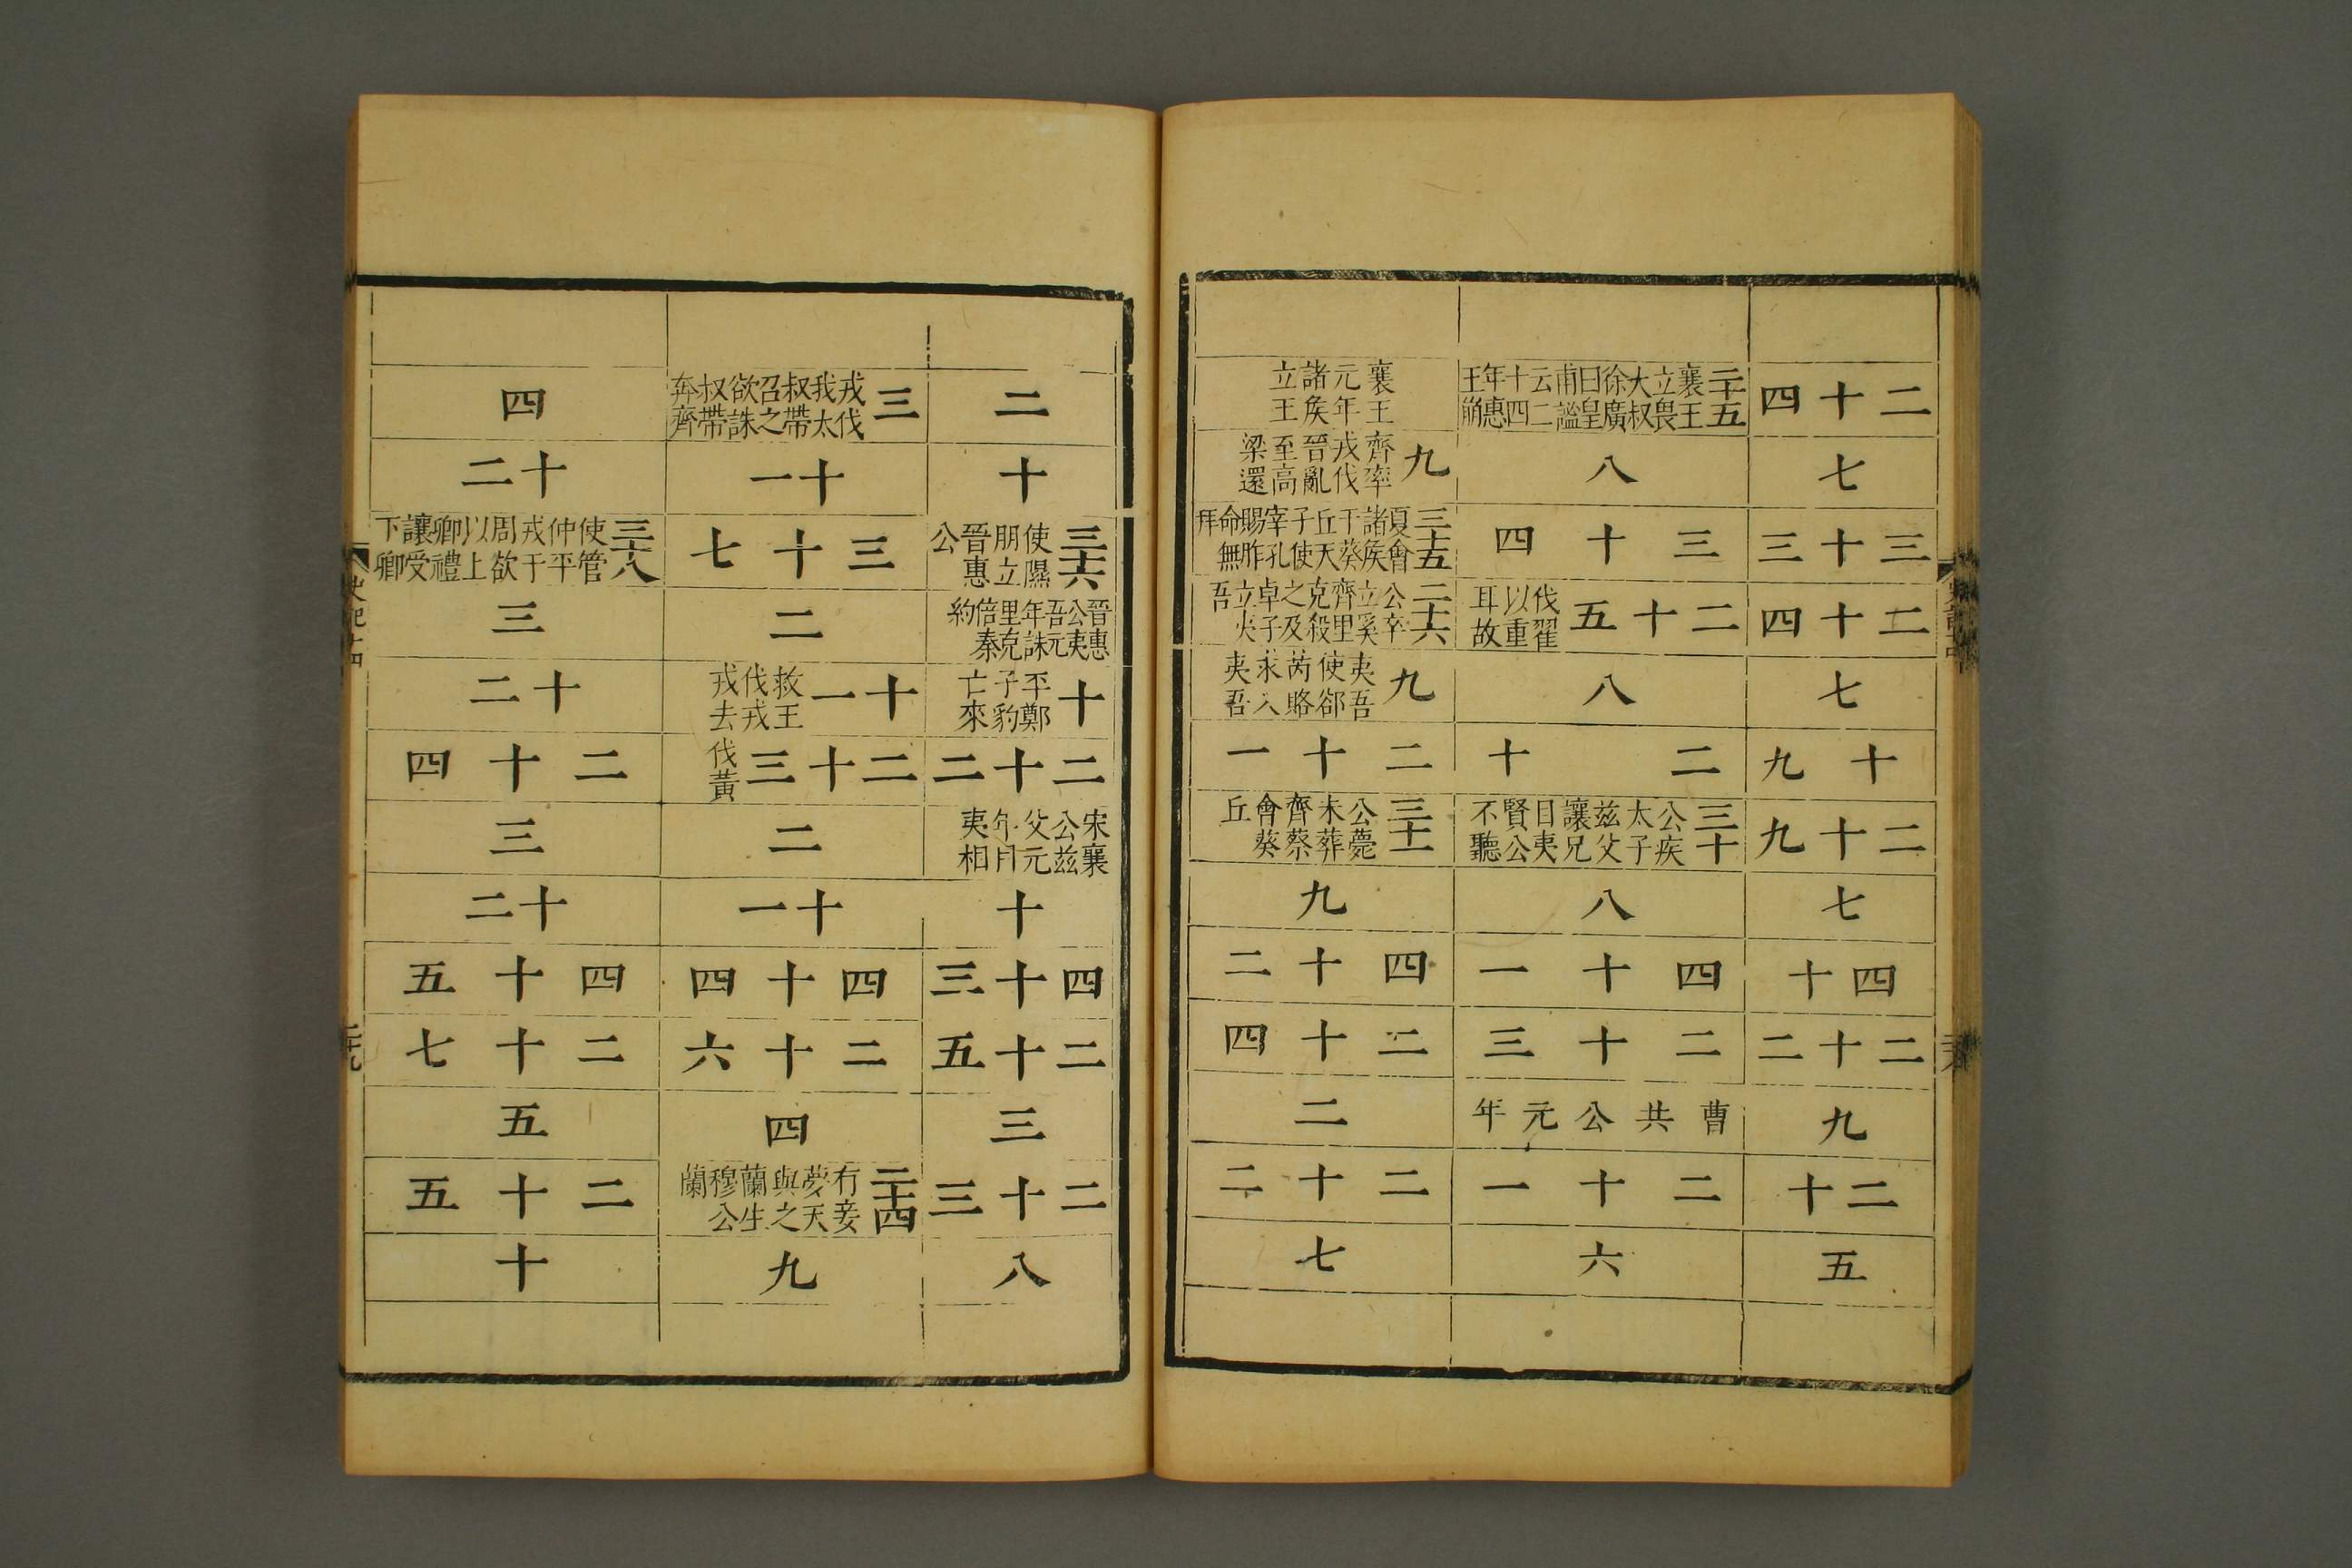 二十四
七
三十三
二十四
七
十九
二十九
七
四十
二十二
九
二十
五
二十五 襄王立畏大叔徐廣曰皇甫謐云二十四年惠王崩
八
三十四
二十五 伐翟以重耳故
八
二十
三十 公疾太子兹父讓兄目夷賢公不聽
八
四十一
二十三
曹共公元年
二十一
六
襄王元年諸侯立王
九 齊率戎伐晉亂至高梁還
三十五 夏會諸侯于葵丘天子使宰孔賜胙命無拜
二十六 公卒立奚齊里克殺之及卓子立夷吾
九 夷吾使郤芮賂求入夷吾
二十一
三十一 公薨未葬齊蔡會葵丘
九
四十二
二十四
二
二十二
七
二
十
三十六 使隰朋立晉惠公
晉惠公夷吾元年誅里克倍秦約
十 平鄭子豹亡來
二十二
宋襄公兹父元年目夷相
十
四十三
二十五
三
二十三
八
三 戎伐我太叔帶召之欲誅叔帶奔齊
十一
三十七
二
十一 救王伐戎戎去
二十三 伐黃
二
十一
四十四
二十六
四
二十四 有妾夢天與之蘭生穆公蘭
九
四
十二
三十八 使管仲平戎于周欲以上卿禮讓受下卿
三
十二
二十四
三
十二
四十五
二十七
五
二十五
十
史記十四
二十九